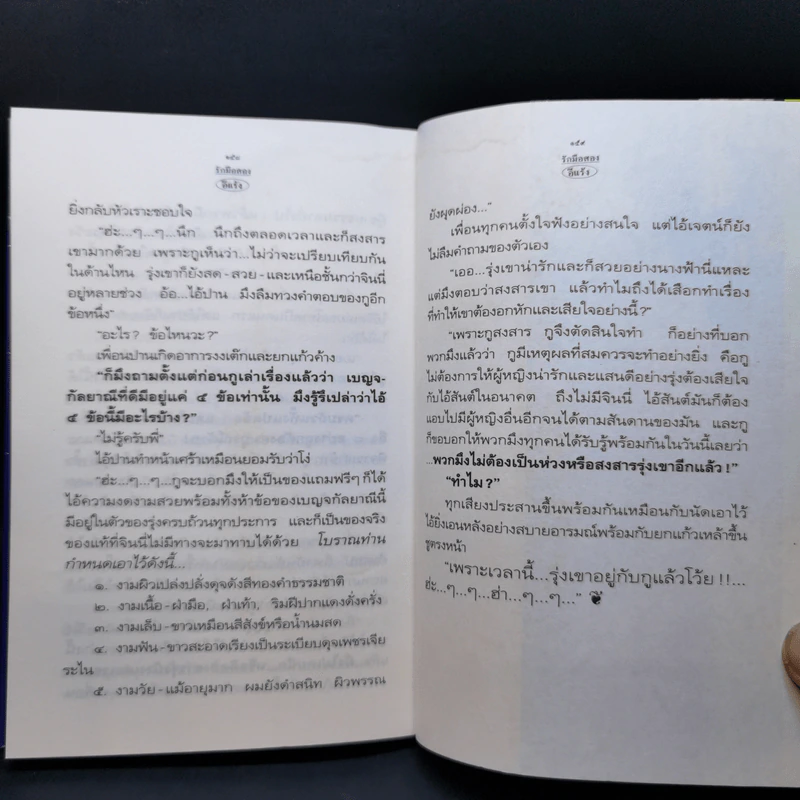 ๑๕๘
รักมือสอง
อีแร้ง
ยิ่งกลับหัวเราะชอบใจ
"ฮ่ะ...ๆ...ๆ...นึก นึกถึงตลอดเวลาและก็สงสาร
เขามากด้วย เพราะกูเห็นว่า...ไม่ว่าจะเปรียบเทียบกัน
ในด้านไหน รุ่งเขาก็ยังสด-สวย-และเหนือชั้นกว่าจินนี่
อยู่หลายช่วง อ้อ...ไอ้ปาน มึงลืมทวงคำตอบของกูอีก
ข้อหนึ่ง"
"อะไร? ข้อไหนวะ?"
เพื่อนปานเกิดอาการงงเต๊กและยกแก้วค้าง
"ก็มึงถามตั้งแต่ก่อนกูเล่าเรื่องแล้วว่า เบญจ-
กัลยาณีที่ดีมีอยู่แค่ ๕ ข้อเท่านั้น มึงรู้รึเปล่าว่าไอ้
๕ ข้อนี้มีอะไรบ้าง?"
"ไม่รู้ครับพี่"
ไอ้ปานทำหน้าเศร้าเหมือนยอมรับว่าโง่
"ฮ่ะ...ๆ...ๆ...กูจะบอกมึงให้เป็นของแถมฟรีๆ ก็ได้
ไอ้ความงดงามสวยพร้อมทั้งห้าข้อของเบญจกัลยาณีนี้
มีอยู่ในตัวของรุ่งครบถ้วนทุกประการ และก็เป็นของจริง
ของแท้ที่จินนี่ไม่มีทางจะมาทาบได้ด้วย โบราณท่าน
กำหนดเอาไว้ดังนี้...
๑. งามผิวเปล่งปลั่งดุจดังสีทองคำธรรมชาติ
๒. งามเนื้อ-ฝ่ามือ, ฝ่าเท้า, ริมฝีปากแดงดั่งครั่ง
๓. งามเล็บ-ขาวเหมือนสีสังข์หรือน้ำนมสด
๔. งามฟัน-ขาวสะอาดเรียงเป็นระเบียบดุจเพชรเจีย
ระไน
๕. งามวัย-แม้อายุมาก ผมยังดำสนิท ผิวพรรณ
๑๕๙
รักมือสอง
อีแร้ง
ยังผุดผ่อง..."
เพื่อนทุกคนตั้งใจฟังอย่างสนใจ แต่ไอ้เจตน์ก็ยัง
ไม่ลืมคำถามของตัวเอง
"เออ...รุ่งเขาน่ารักและก็สวยอย่างนางฟ้านี่แหละ
แต่มึงตอบว่าสงสารเขา แล้วทำไมถึงได้เสือกทำเรื่อง
ที่ทำให้เขาต้องอกหักและเสียใจอย่างนี้?"
"เพราะกูสงสาร กูจึงตัดสินใจทำ ก็อย่างที่บอก
พวกมึงแล้วว่า กูมีเหตุผลที่สมควรจะทำอย่างยิ่ง คือกู
ไม่ต้องการให้ผู้หญิงน่ารักและแสนดีอย่างรุ่งต้องเสียใจ
กับไอ้สันต์ในอนาคต ถึงไม่มีจินนี่ ไอ้สันต์มันก็ต้อง
แอบไปมีผู้หญิงอื่นอีกจนได้ตามสันดานของมัน และกู
ก็ขอบอกให้พวกมึงทุกคนได้รับรู้พร้อมกันในวันนี้เลยว่า
...พวกมึงไม่ต้องเป็นห่วงหรือสงสารรุ่งเขาอีกแล้ว!"
"ทำไม?"
ทุกเสียงประสานขึ้นพร้อมกันเหมือนกับนัดเอาไว้
ไอ้ยิ่งเอนหลังอย่างสบายอารมณ์พร้อมกับยกแก้วเหล้าขึ้น
ชูตรงหน้า
"เพราะเวลานี้...รุ่งเขาอยู่กับกูแล้วโว้ย!!...
ฮ่ะ...ๆ...ๆ...ฮ่า...ๆ...ๆ..."